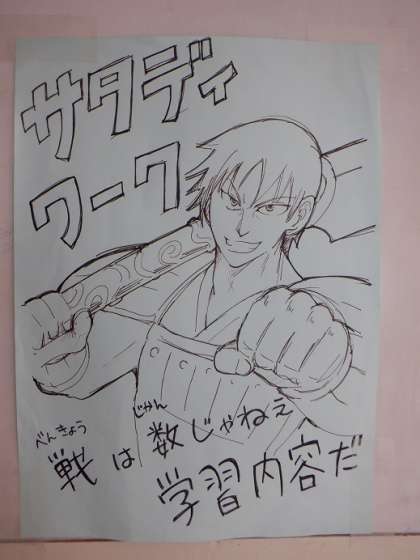 サタディ
ワーク
べんきょう じかん
戦は数じゃねぇ
学習内容だ